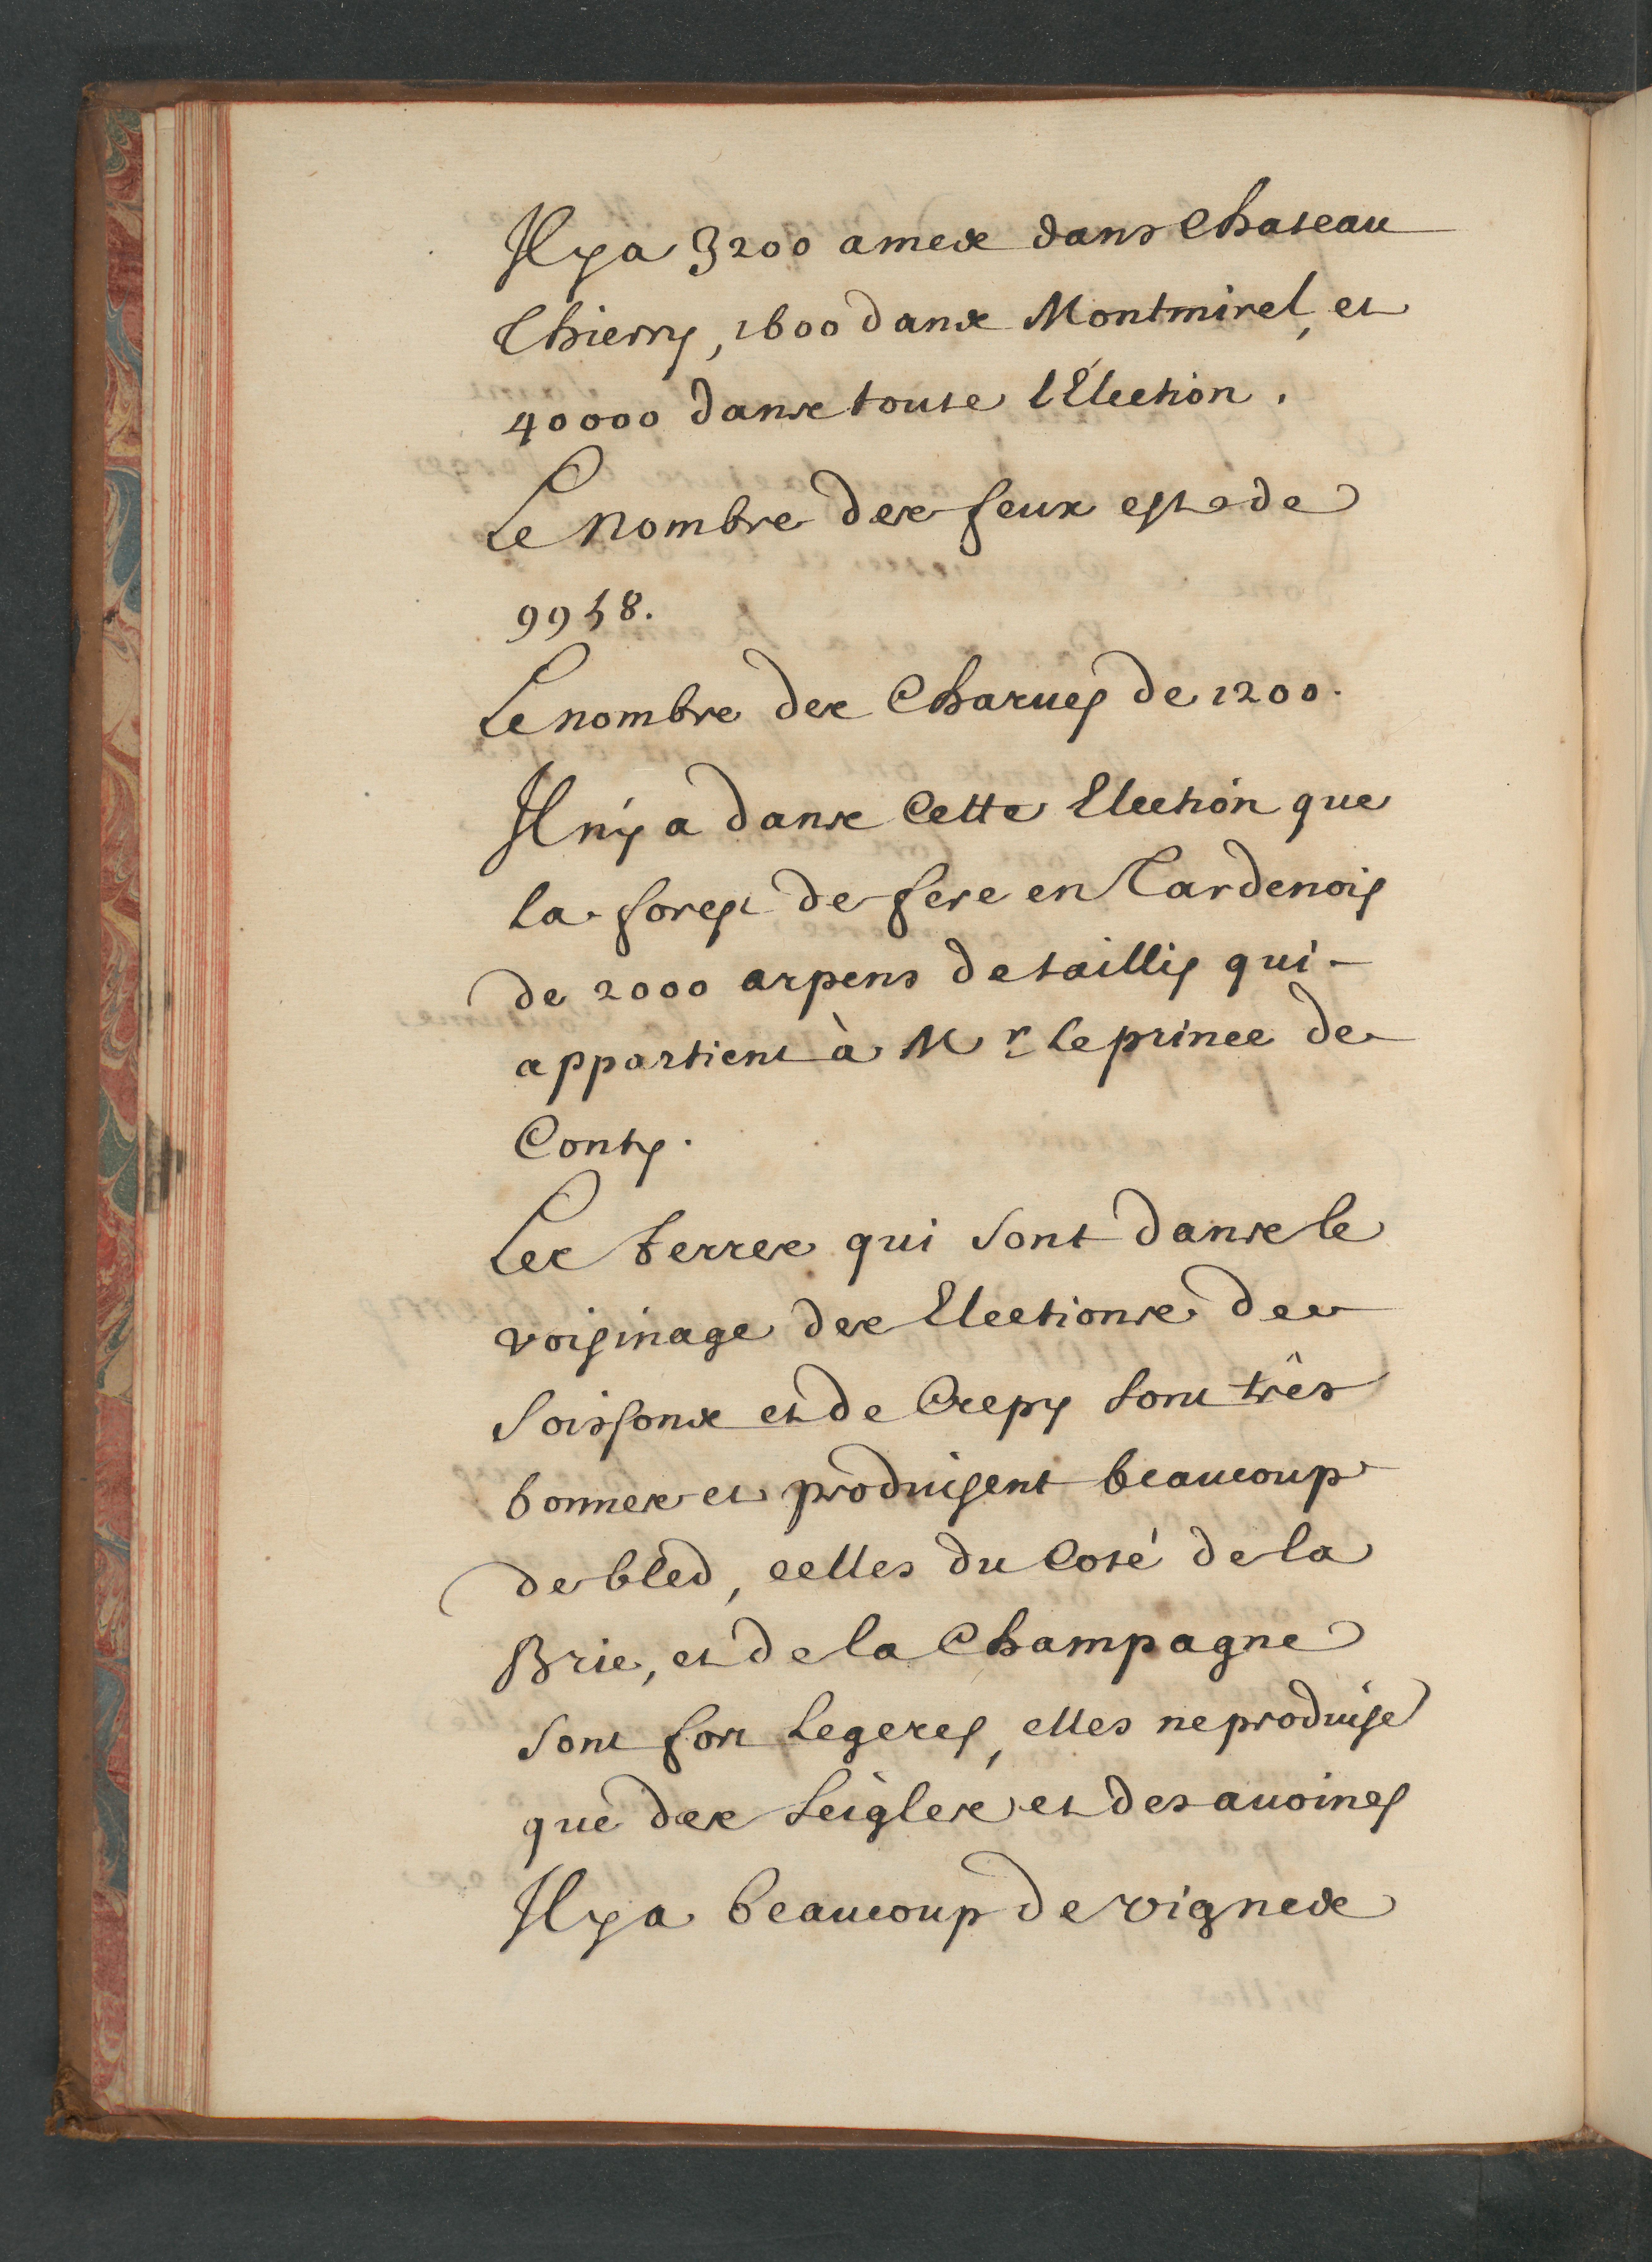 Il y a 3200 ames dans Chateau
Thierry, 1600 dans Montmirel, et
40000 dans toute l'Election.
Le Nombre des feux est de
9958.
Le nombre des Charues de 1200.
Il n'y a dans Cette Election que
la forest de fere en Tardenois
de 2000 arpens de taillis qui
appartient à Mr. le prince de
Conty.
Les terres qui sont dans le
voisinage des Elections de
Soissons et de Crepy sont très
bonnes et produisent beaucoup
de bled, celles du Costé de la
Brie, et de la Champagne
sont fort Legeres, elles ne produise
que des Seigles et des auoines
Il y a beaucoup de vignes